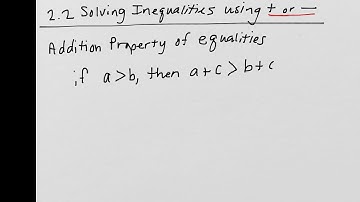 2.2 Solving Inequalities using + or −
Addition Property of equalities
if a>b, then a+c > b+c